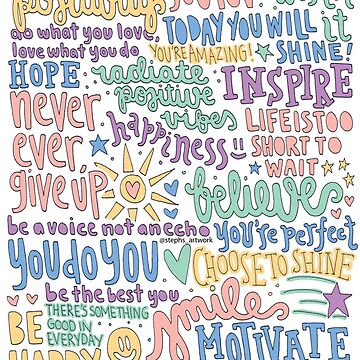 positivity
do what you love
love what you do
TODAY YOU WILL
SHINE!
it
YOU'RE AMAZING!
HOPE
radiate
positive
vibes
INSPIRE
never
ever
give up
happiness
LIFE IS TOO
SHORT TO
WAIT
believe
be a voice not an echo
@stephs_artwork
you're perfect
YOU DO YOU
CHOOSE TO SHINE
be the best you
THERE'S SOMETHING
GOOD IN
EVERYDAY
smile
BE
HAPPY
MOTIVATE